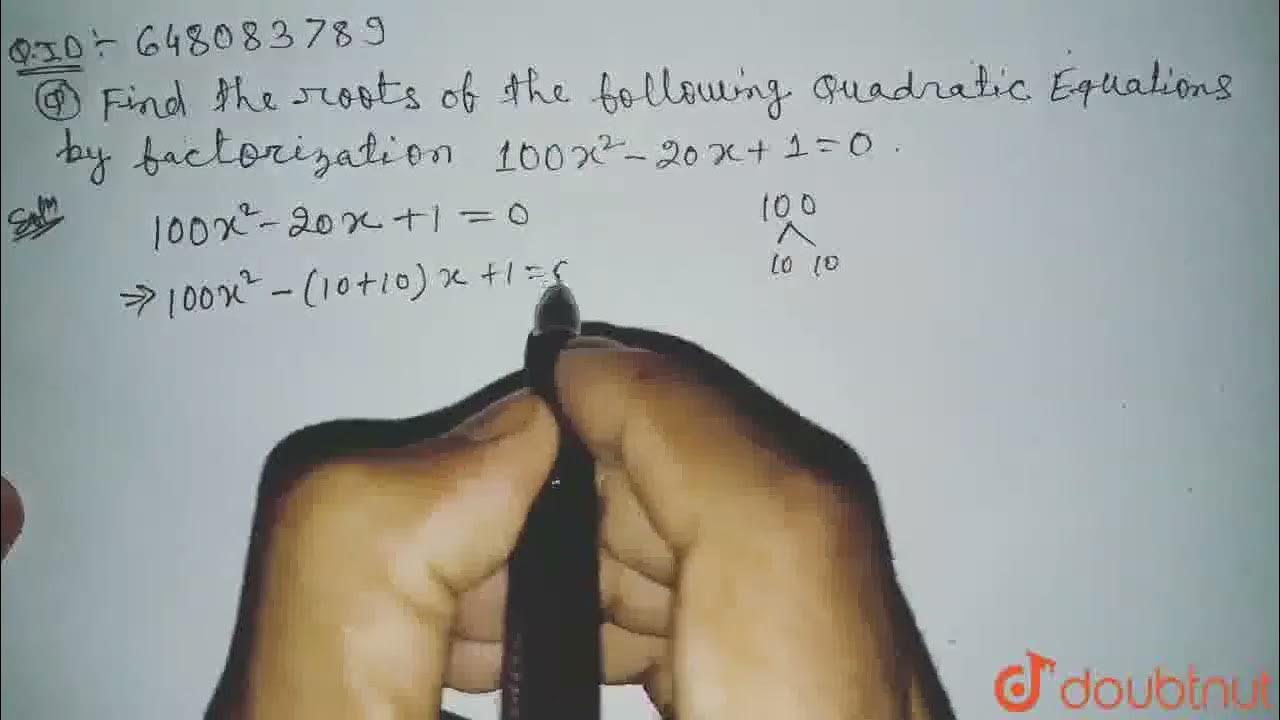 Q.ID:- 648083789
Q) Find the roots of the following Quadratic Equations
by factorization 100x² - 20x + 1 = 0 .
Solⁿ 100x² - 20x + 1 = 0
100
10 10
⇒ 100x² - (10+10) x + 1 =
doubtnut